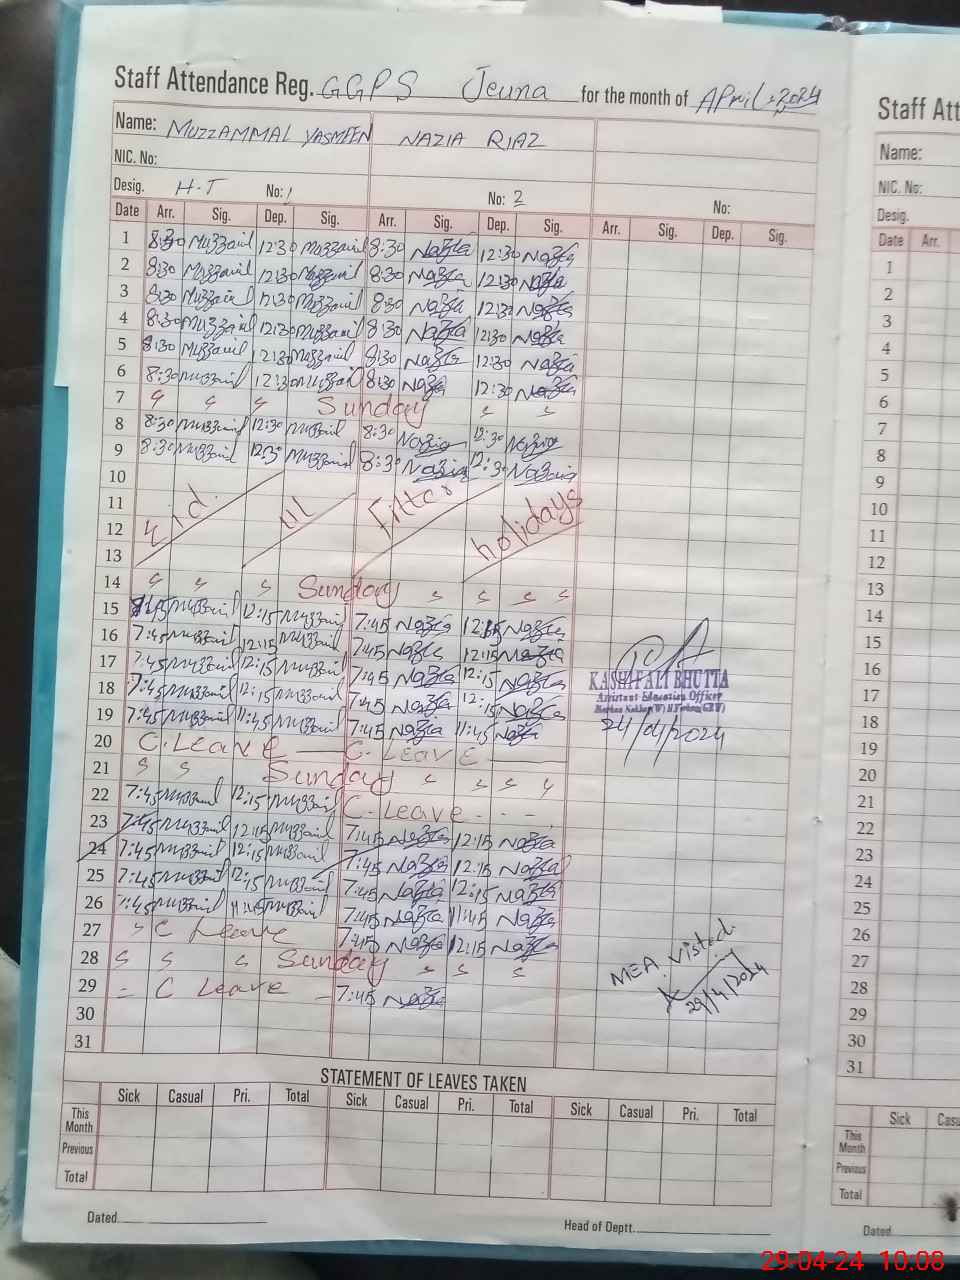 Staff Attendance Reg. GGPS Jeuna for the month of April, 2024
Name: MUZZAMMAL YASMEEN NAZIA RIAZ
NIC. No:
Desig. H.T No: 1 No: 2 No:
Date Arr. Sig. Dep. Sig. Arr. Sig. Dep. Sig. Arr. Sig. Dep. Sig.
1 8:30 Muzzamil 12:30 Muzzamil 8:30 Nazia 12:30 Nazia
2 8:30 Muzzamil 12:30 Muzzamil 8:30 Nazia 12:30 Nazia
3 8:30 Muzzamil 12:30 Muzzamil 8:30 Nazia 12:30 Nazia
4 8:30 Muzzamil 12:30 Muzzamil 8:30 Nazia 12:30 Nazia
5 8:30 Muzzamil 12:30 Muzzamil 8:30 Nazia 12:30 Nazia
6 8:30 Muzzamil 12:30 Muzzamil 8:30 Nazia 12:30 Nazia
7 Sunday
8 8:30 Muzzamil 12:30 Muzzamil 8:30 Nazia 12:30 Nazia
9 8:30 Muzzamil 12:30 Muzzamil 8:30 Nazia 12:30 Nazia
10
11 id. ul Fitter holidays
12
13
14 Sunday
15 7:45 Muzzamil 12:15 Muzzamil 7:45 Nazia 12:15 Nazia
16 7:45 Muzzamil 12:15 Muzzamil 7:45 Nazia 12:15 Nazia
17 7:45 Muzzamil 12:15 Muzzamil 7:45 Nazia 12:15 Nazia
18 7:45 Muzzamil 12:15 Muzzamil 7:45 Nazia 12:15 Nazia
19 7:45 Muzzamil 11:45 Muzzamil 7:45 Nazia 11:45 Nazia
KASHIF ALI BHUTTA
Assistant Education Officer
24/04/2024
20 C. Leave C. Leave
21 Sunday
22 7:45 Muzzamil 12:15 Muzzamil C. Leave
23 7:45 Muzzamil 12:15 Muzzamil 7:45 Nazia 12:15 Nazia
24 7:45 Muzzamil 12:15 Muzzamil 7:45 Nazia 12:15 Nazia
25 7:45 Muzzamil 12:15 Muzzamil 7:45 Nazia 12:15 Nazia
26 7:45 Muzzamil 11:45 Muzzamil 7:45 Nazia 11:45 Nazia
27 C Leave 7:45 Nazia 12:15 Nazia
28 Sunday
29 C Leave 7:45 Nazia
30
31
MEA. Visted.
29/4/2024
STATEMENT OF LEAVES TAKEN
Sick Casual Pri. Total Sick Casual Pri. Total Sick Casual Pri. Total
This Month
Previous
Total
Dated Head of Deptt.
Staff Att
Name:
NIC. No:
Desig.
Date Arr.
1
2
3
4
5
6
7
8
9
10
11
12
13
14
15
16
17
18
19
20
21
22
23
24
25
26
27
28
29
30
31
Sick Casu
This Month
Previous
Total
Dated
29-04-24 10:08